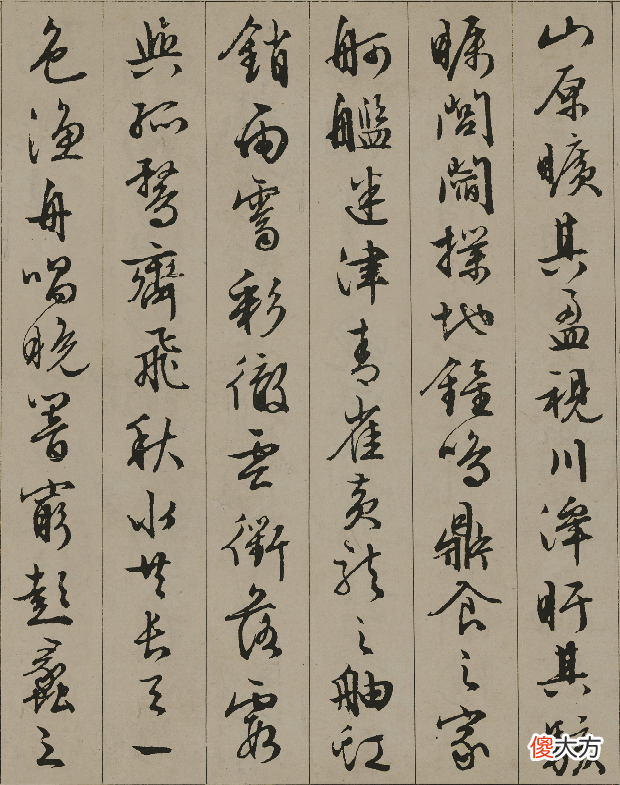 山原曠其盈視川澤盱其駭
矚閭閻撲地鐘鳴鼎食之家
舸艦迷津青雀黃龍之舳虹
銷雨霽彩徹雲衢落霞
與孤鶩齊飛秋水共長天一
色漁舟唱晚響窮彭蠡之
傻大方